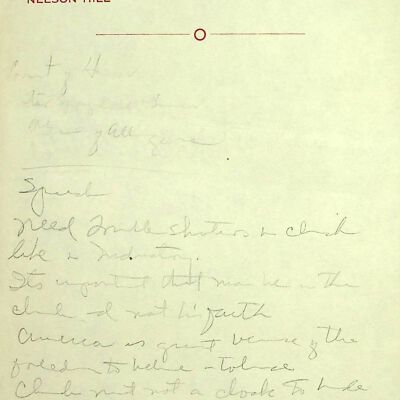 NELSON HILL
Speech
Need Trouble Shooters in church
like in Industry.
Its important that man be in the
church and not his faith
America is great because of the
freedom to believe - tolerance
Church must not a cloak to hide